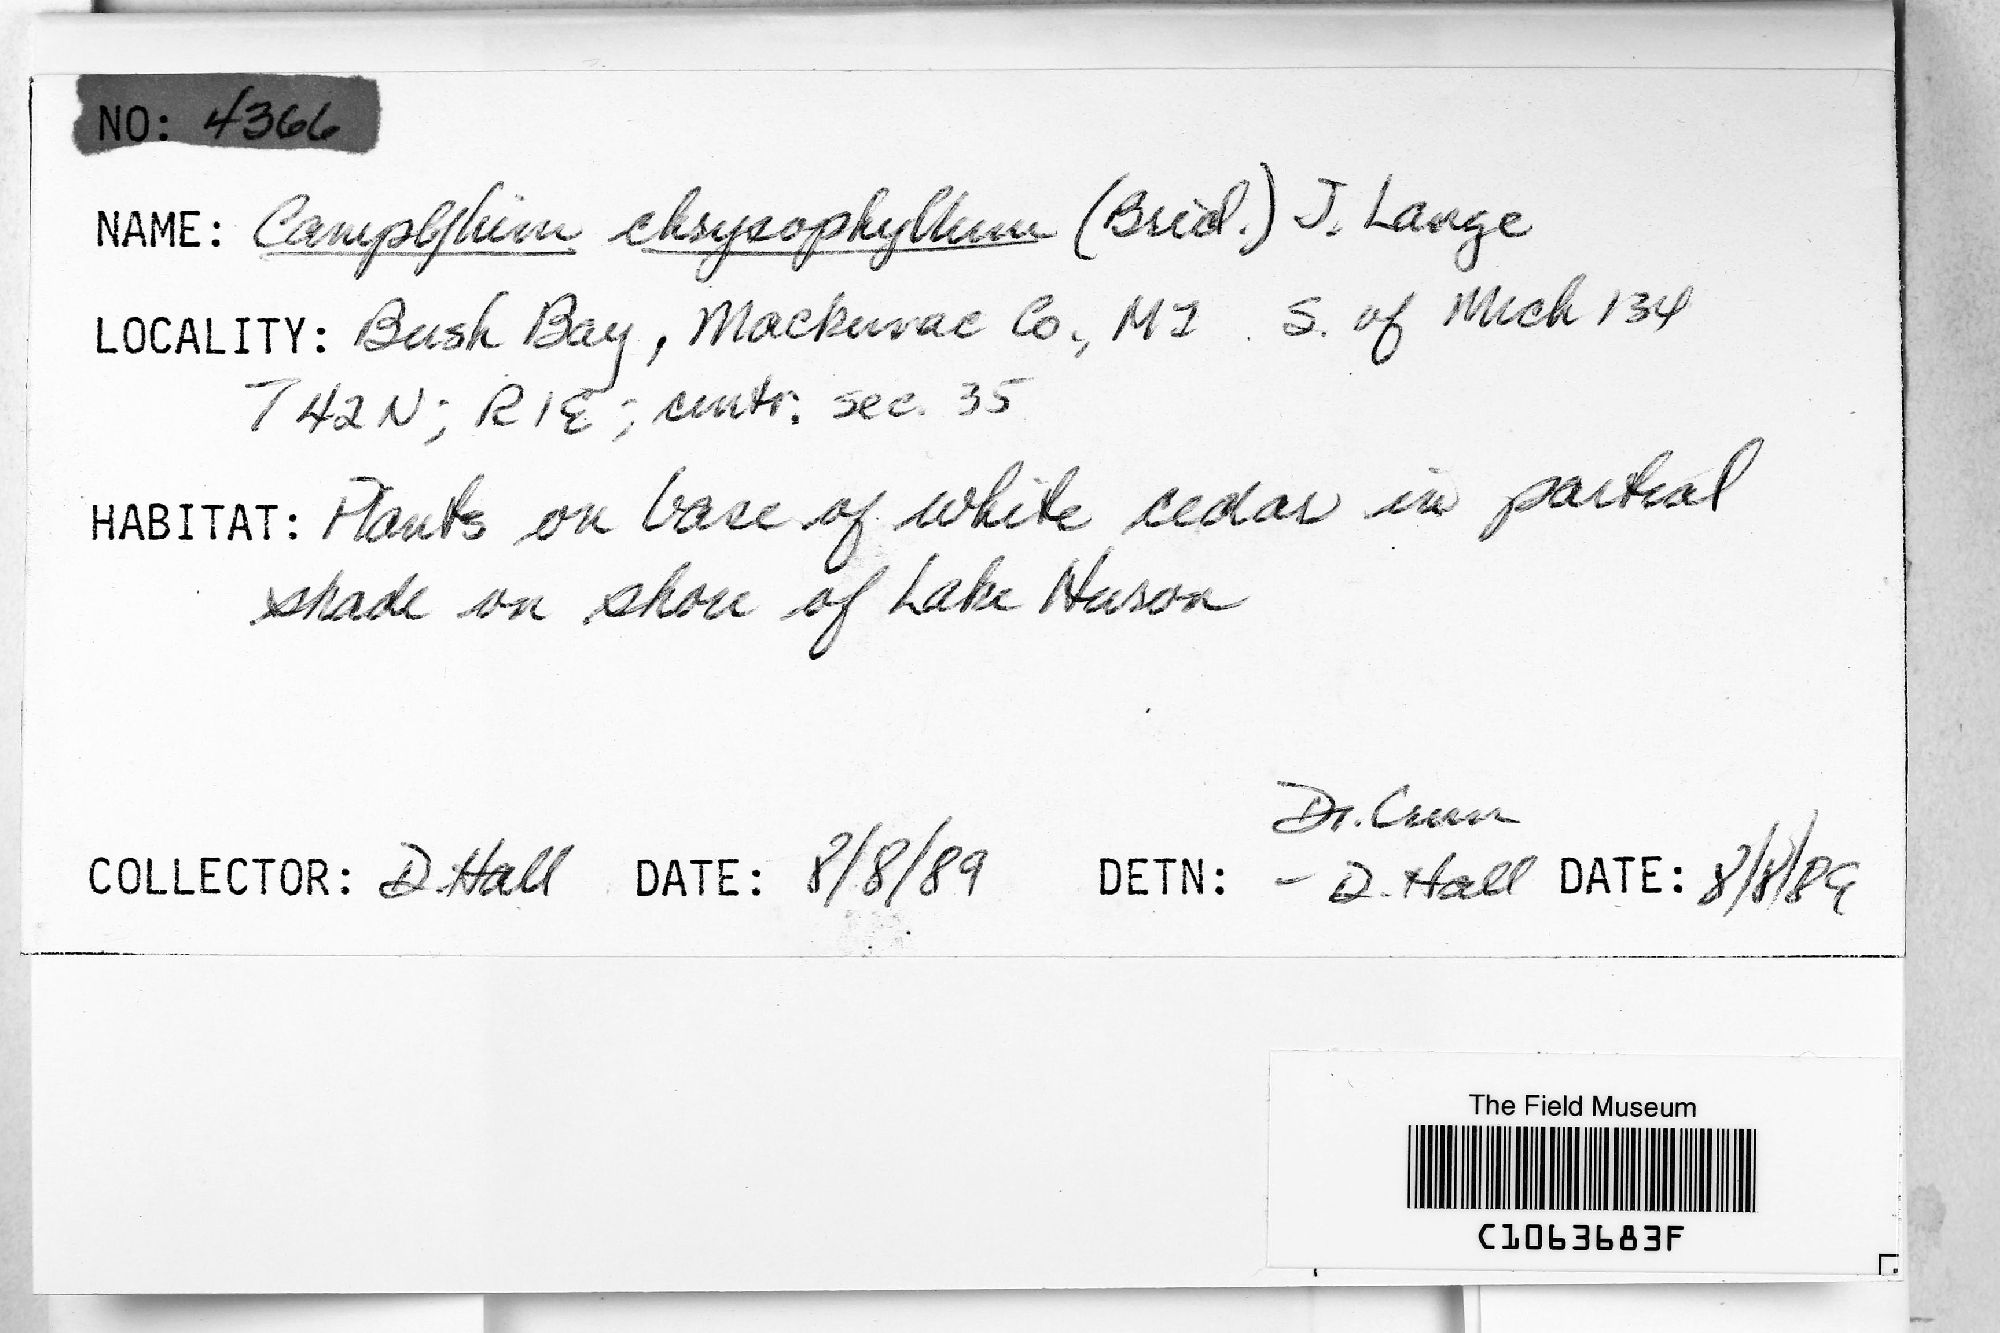 NO: 4366
NAME: Campylium chrysophyllum (Brid.) J. Lange
LOCALITY: Bush Bay, Mackinac Co., MI. S. of Mich 134
T42N; R1E; cntr. sec. 35
HABITAT: Plants on base of white cedar in partial
shade on shore of Lake Huron
Dr. Crum
COLLECTOR: D. Hall DATE: 8/8/89 DETN: - D. Hall DATE: 8/8/89
The Field Museum
C1063683F